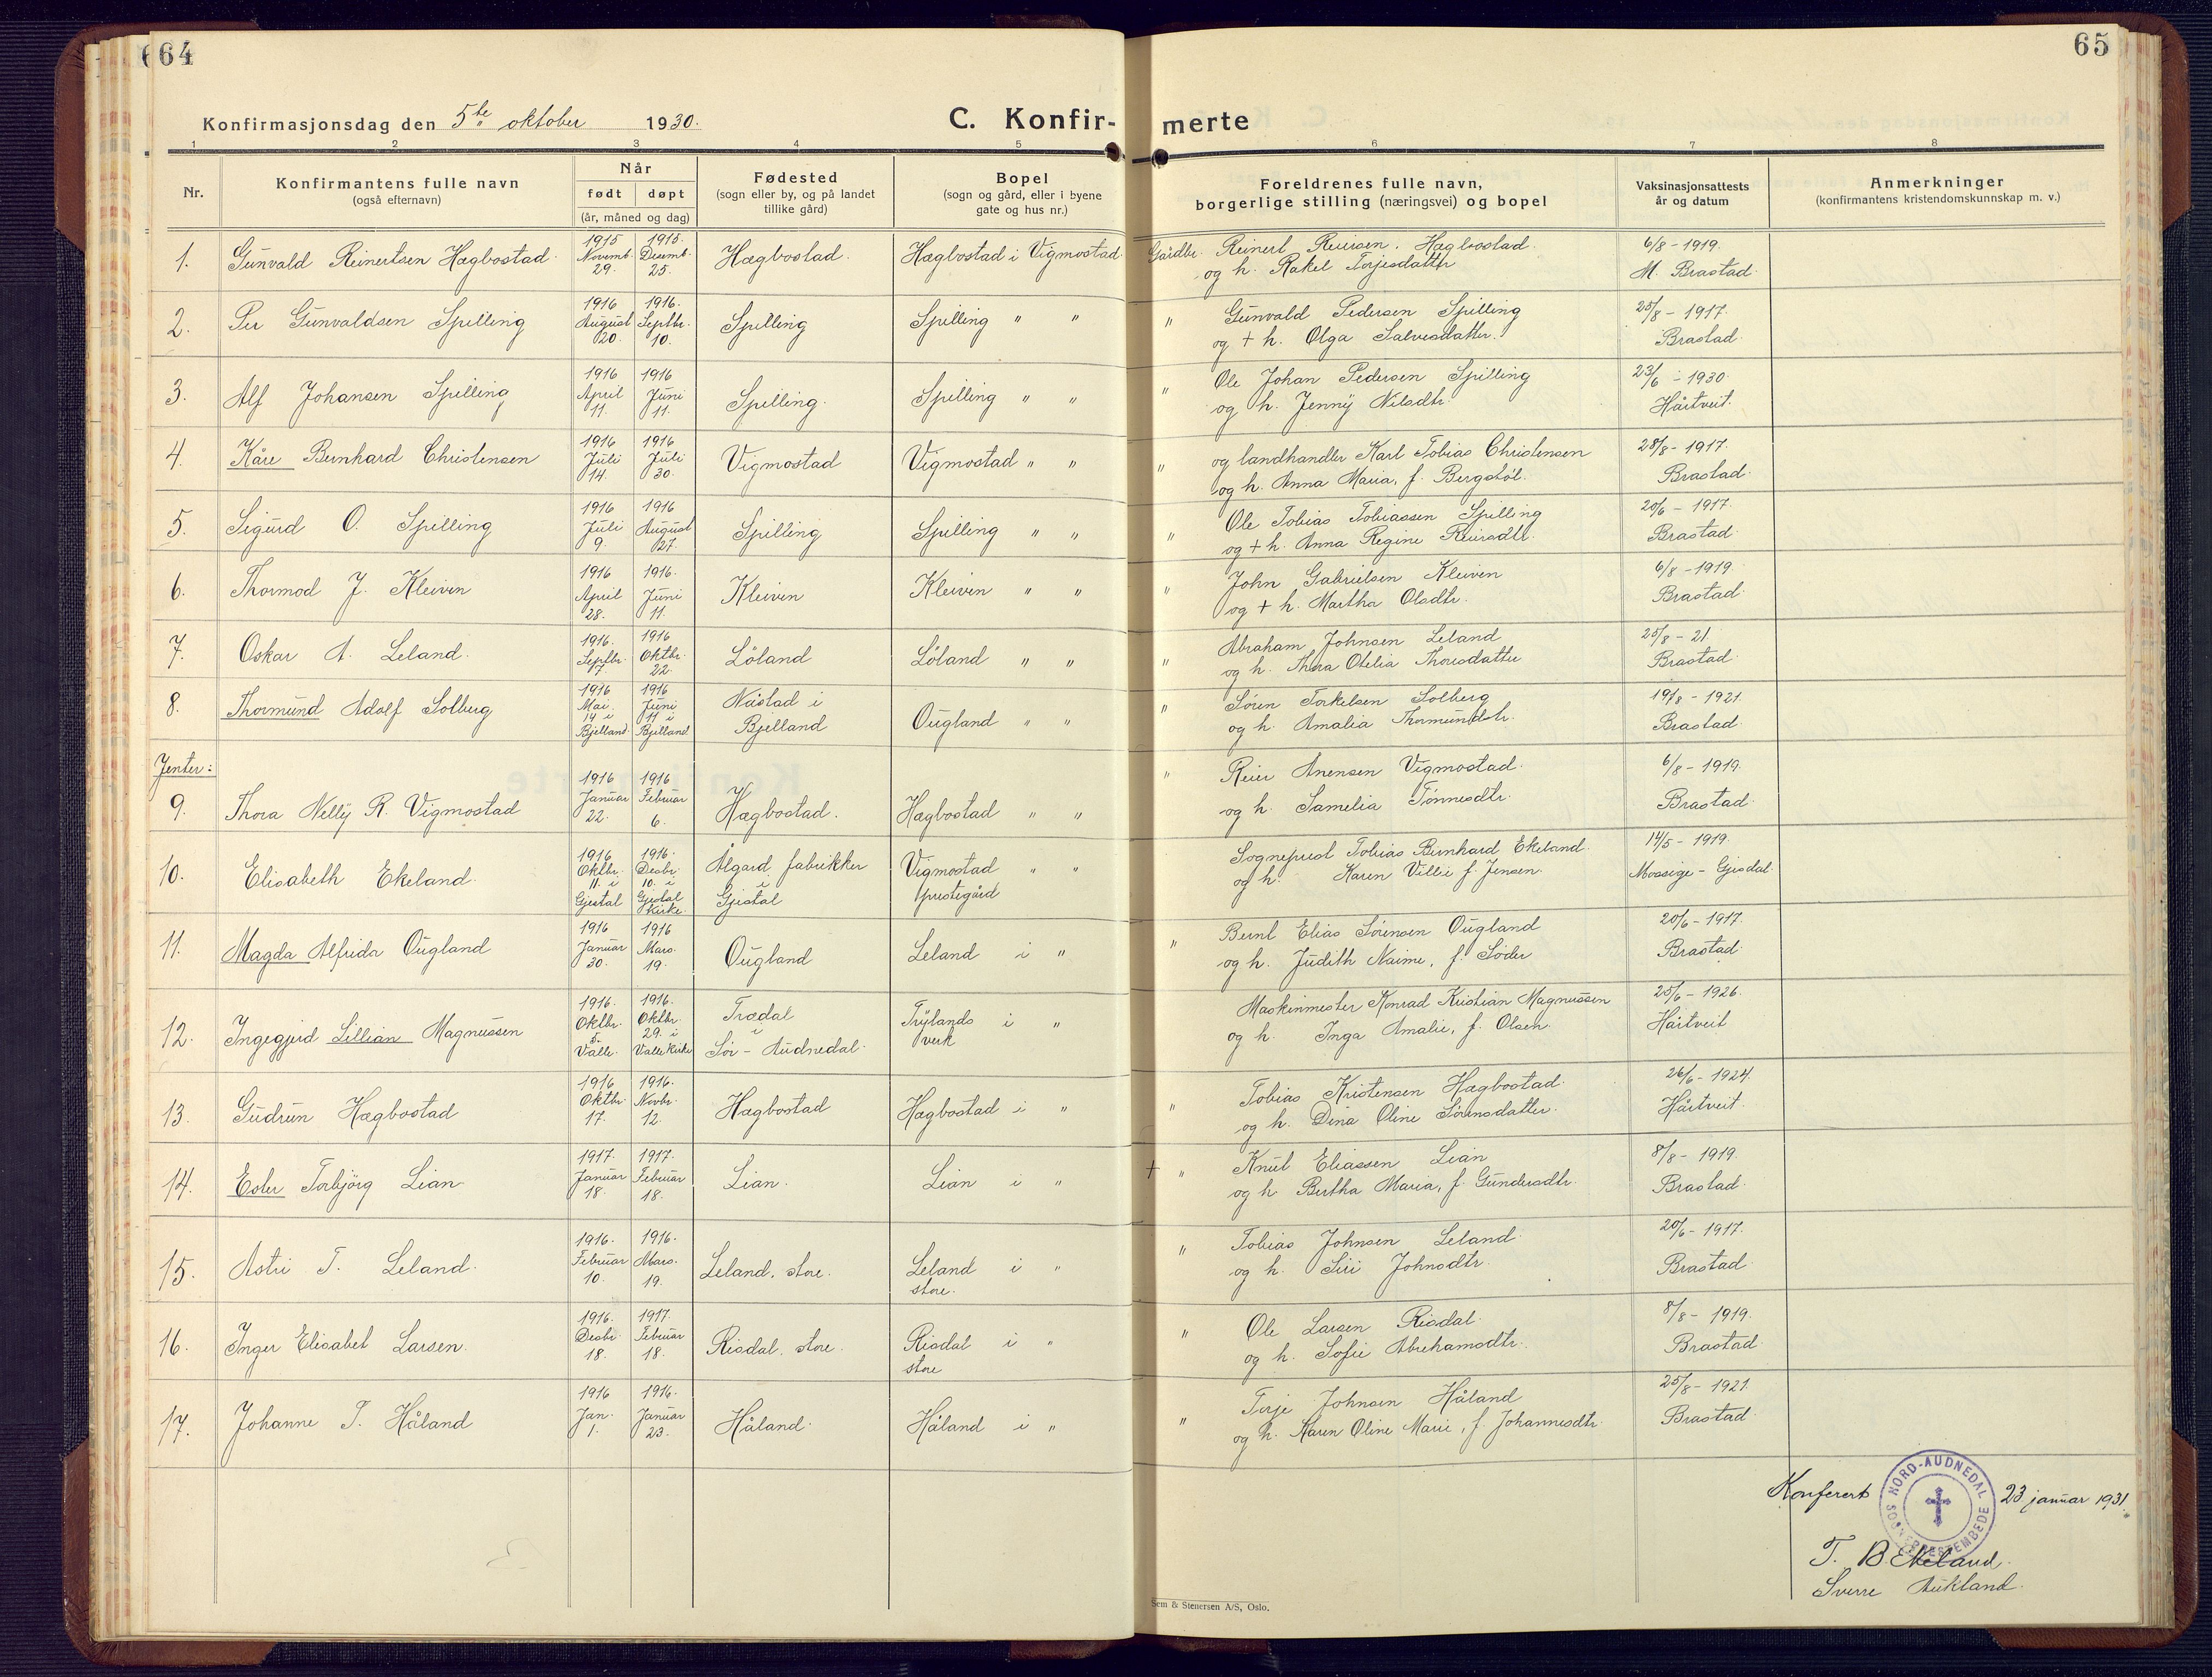 64
65
Konfirmasjonsdag den 5te oktober 1930.
C. Konfir-
merte
1 2 3 4 5 6 7 8
Nr.
Konfirmantens fulle navn
(også efternavn)
Når
født døpt
(år, måned og dag)
Fødested
(sogn eller by, og på landet
tillike gård)
Bopel
(sogn og gård, eller i byene
gate og hus nr.)
Foreldrenes fulle navn,
borgerlige stilling (næringsvei) og bopel
Vaksinasjonsattests
år og datum
Anmerkninger
(konfirmantens kristendomskunnskap m. v.)
1. Gunvald Reinertsen Hægbostad 1915 Novemb. 29. 1915. Desemb. 25. Hægbostad. Hægbostad i Vigmostad Gårdbr. Reinert Reiersen Hægbostad. 6/8 - 1919.
og h. Rakel Terjesdatter M. Brastad
2. Per Gunvaldsen Spilling 1916 August 20. 1916. Septbr. 10. Spilling Spilling " " " Gunvald Pedersen Spilling 25/8 - 1917.
og + h. Olga Salvesdatter. Brastad
3. Alf Johansen Spilling 1916 April 11. 1916 Juni 11. Spilling. Spilling " " " Ole Johan Pedersen Spilling 23/6 - 1930.
og h. Jenny Nilsdtr. Hårtveit.
4. Kåre Bernhard Christensen 1916 Juli 14. 1916 Juli 30. Vigmostad Vigmostad " " " og landhandler Karl Tobias Christensen 28/8 - 1917
og h. Anna Maria, f. Bergstøl. Brastad
5. Sigurd O. Spilling 1916 Juli 9 1916 August 27. Spilling Spilling " " " Ole Tobias Tobiassen Spilling 20/6 - 1917.
og + h. Anna Regine Reiersdtr. Brastad
6. Thormod J. Kleiven 1916 April 28. 1916. Juni 11. Kleiven Kleiven " " " John Gabrielsen Kleiven 6/8 - 1919.
og + h. Martha Olsdtr. Brastad
7. Oskar A. Leland. 1916. Septbr. 17. 1916 Oktbr. 22. Löland Löland " " " Abraham Johnsen Leland 25/8 - 21.
og h. Thea Otelia Thoresdatter Brastad
8. Thormund Adolf Solberg 1916 Mai 14 i Bjelland. 1916 Juni 11 i Bjelland Nåstad i Bjelland Ougland " " " Sören Torkelsen Solberg 19/8 - 1921.
og h. Amalia Thormundsdtr. Brastad
Jenter:
9. Thora Nelly R. Vigmostad 1916 Januar 22. 1916 Februar 6. Hægbostad. Hægbostad " " " Reier Anensen Vigmostad. 6/8 - 1919.
og h. Samelia Tønnesdtr. Brastad
10. Elisabeth Ekeland. 1916 Oktbr. 11. i Gjestal 1916. Desbr. 10. i Gjestal kirke. Ålgard fabrikker i Gjestal Vigmostad prestegård " " Sogneprest Tobias Bernhard Ekeland. 14/5 - 1919.
og h. Karen Villie f. Jensen. Mossige - Gjesdal.
11. Magda Alfrida Ougland 1916 Januar 30. 1916 Mars. 19. Ougland Leland i " " Bernt Elias Sörensen Ougland 20/6 - 1917.
og h. Judith Naime, f. Söder Brastad
12. Ingegjerd Lillian Magnussen 1916. Oktbr. 5. Valle. 1916. Oktbr. 29. i Valle kirke Trædal i Sör-Audnedal. Trylands verk i " Maskinmester Konrad Kristian Magnussen 25/6 - 1926.
og h. Inga Amalie, f. Olsen. Hårtveit
13. Gudrun Hægbostad 1916 Oktbr. 17. 1916. Novbr. 12. Hægbostad Hægbostad i " " Tobias Kristensen Hægbostad. 26/6 - 1924.
og h. Dina Oline Sörensdatter. Hårtveit.
14. Ester Torbjörg Lian 1917. Januar 18. 1917. Februar 18. Lian. Lian i " + " Knut Eliassen Lian 8/8 - 1919.
og h. Bertha Maria, f. Gundersdtr. Brastad.
15. Astri T. Leland. 1916. Februar 10. 1916. Mars. 19. Leland, store. Leland store. i " " Tobias Johnsen Leland. 20/6 - 1917.
og h. Siri Johnsdtr. Brastad
16. Inger Elisabet Larsen. 1916. Desbr. 18. 1917. Februar 18. Risdal, store. Risdal store i " " Ole Larsen Risdal. 8/8 - 1919.
og h. Sofie Abrahamsdtr. Brastad
17. Johanne T. Håland 1916 Jan. 1. 1916. Januar 23. Håland. Håland i " " Terje Johnsen Håland 25/8 - 1921.
og h. Karen Oline Marie, f. Johannesdtr. Brastad
Konferert 23 januar 1931.
NORD-AUDNEDAL SOGNEPRESTEMBEDE
T. B. Ekeland.
Sverre Aukland.
Sem & Stenersen A/S, Oslo.